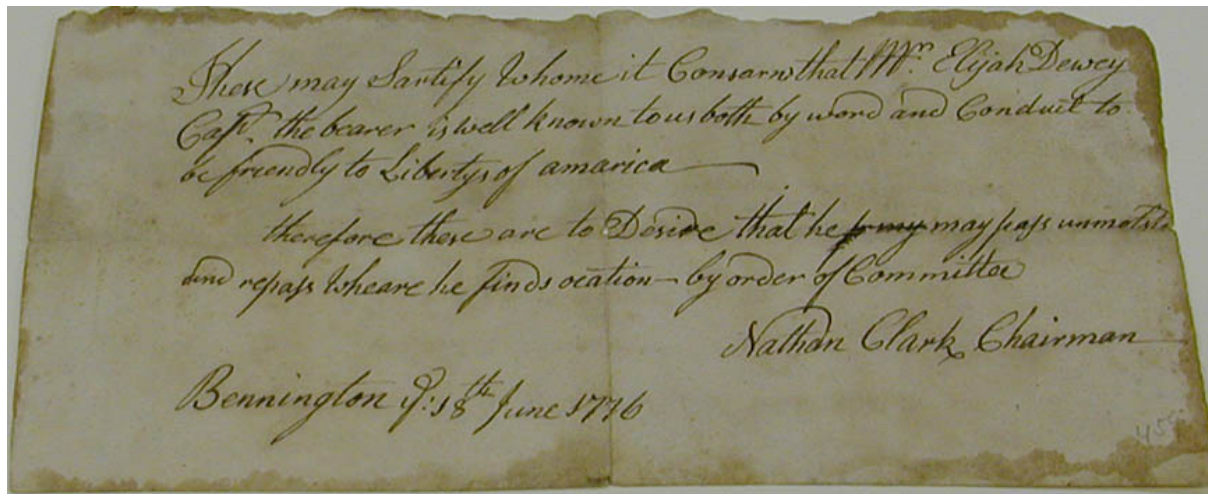 These may Sartify Whome it Consarns that Mr. Elijah Dewey
Capt. the bearer is well known to us both by word and Conduct to
be friendly to Libertys of amarica
therefore these are to Desire that he may pass unmolste
and repass Wheare he finds ocation – by order of Committee
Nathan Clark Chairman
Bennington ye: 18th June 1776